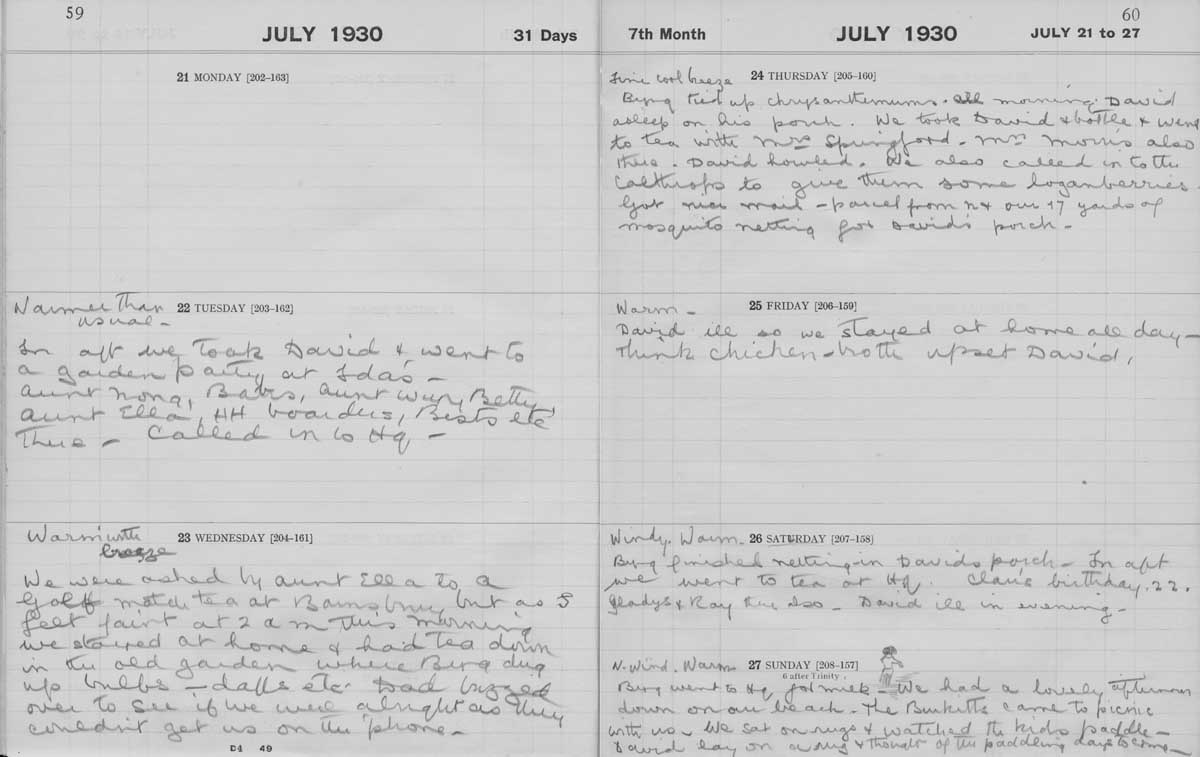 59
JULY 1930
31 Days
21 MONDAY [202–163]
Warmer than
usual –
22 TUESDAY [203–162]
In aft we took David & went to
a garden party at Ida's –
Aunt Nona, Babs, Aunt Betty
Aunt Ella, HH boarders, etc
there – Called in to Hq –
Warm with
breeze
23 WEDNESDAY [204–161]
We were asked by Aunt Ella to a
Golf match tea at Barnsbury but as I
felt faint at 2 am this morning
we stayed at home & had tea down
in the old garden where Byng dug
up bulbs – daffs etc. Dad buzzed
over to see if we were alright as they
couldn't get us on the 'phone –
D4 49
60
7th Month
JULY 1930
JULY 21 to 27
Fine cool breeze
24 THURSDAY [205–160]
Byng tied up chrysanthemums all morning. David
asleep on his porch. We took David & bottle & went
to tea with Mrs Springford. Mrs Morris also
there. David howled. We also called in to the
Calthrops to give them some loganberries
Got nice mail – parcel from & our 17 yards of
mosquito netting for David's porch –
Warm –
25 FRIDAY [206–159]
David ill so we stayed at home all day –
Think chicken-broth upset David,
Windy. Warm –
26 SATURDAY [207–158]
Byng finished netting-in Davids porch – In aft
we went to tea at Hq. birthday. 22.
Gladys & Ray also – David ill in evening –
N. Wind. Warm
27 SUNDAY [208–157]
6 after Trinity
Byng went to Hq for milk – We had a lovely afternoon
down on our beach – The Burkitts came to picnic
with us – We sat on rugs & watched the kids paddle –
David lay on a rug & thought of the paddling days to come –